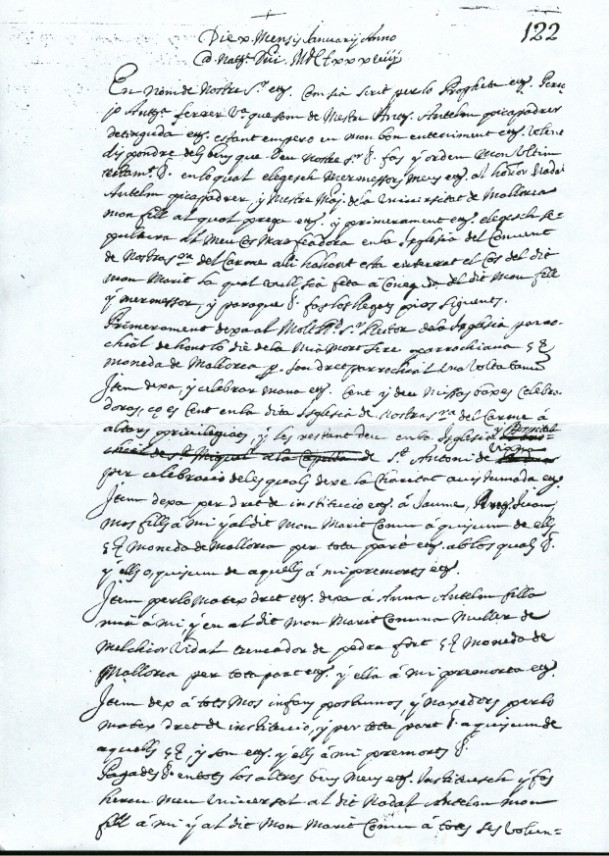 122
Die x. Mensis Januarij Anno
a Natte. Dni. MDCLxxxxiiij
En nom de Nostre Sr. etts. Com sia scrit per lo Propheta etts. Perso
jo Anta. ferrer Va. que som de Mestre Anty. Antelm picapedrer
detinguda etts. estant empero en mon bon enteniment etts. volent
dispondre dels bens que Deu Nostre Sr. fas y orden mon ultim
testamt. en lo qual elegesch mermessors meus etts. al honor Nadal
Antelm picapedrer, y Mestre Maj. de la Universitat de Mallorca
mon fill al qual prega etts. y primerament etts. elegesch se-
pultura al meu Cos Marfeadora en la Iglesia del Convent
de Nostra Sra. del Carme alli hahont esta enterrat el Cos del dit
mon Marit la qual vull sia feta á Coneg. del dit mon fill
y mermessor, y paraque fas los llegats pios siguents.
Primerament dexa al Molt Rt. Sr. Rector de la Iglesia parro-
chial de hont lo die de la mia mort sere parrochiana
moneda de Mallorca p. son dret parrochial una volta tant
Item dexa, y celebrar mana etts. Cent y deu Missas baxes celebra-
dores, ço es Cent en la dita Iglesia de Nostra Sra. del Carme á
altars privilegiats, y les restants deu en la Iglesia y Hospital
chial de St. Miquel a la Capella de St. Antoni de Viana
per celebracio de les quals dexe la Charitat acustumada etts.
Item dexa per dret de institucio etts. á Jaume, Anty. Juan
mos fills á mi y al dit mon Marit Comu á quiscun de ells
moneda de Mallorca per tota part etts. ab los quals
y ells o, quiscun de aquells á mi premorts etts.
Item per lo matex dret etts. dexa á Anna Antelm filla
mia á mi y en al dit mon Marit Comuna Muller de
Melchior Vidal trencador de pedra fort moneda de
Mallorca per tota part etts. y ella á mi premorta etts.
Item dex á tots mos infans postumos, y naxedors per lo
matex dret de institucio, y per tota part a quiscun de
aquells, y son etts. y ells á mi premorts
Pagades en tots los altres bens meus etts. Instituesch y fas
hereu meu Universal al dit Nadal Antelm mon
fill á mi y al dit mon Marit Comu á totes ses volun=